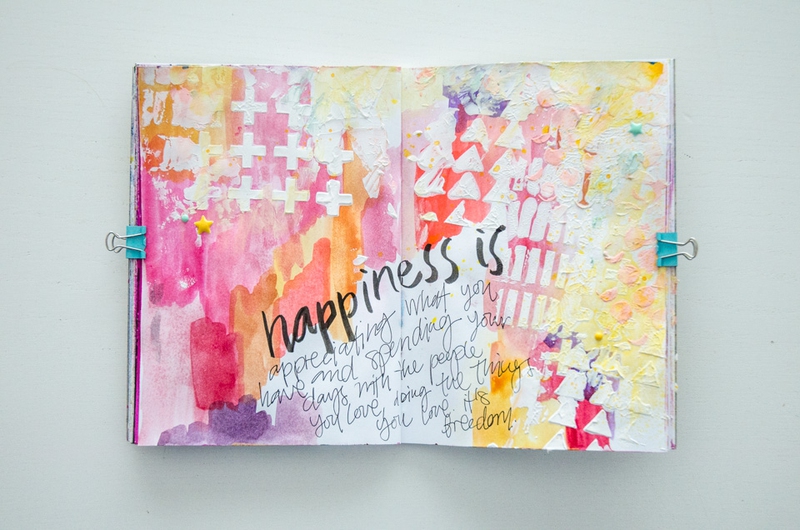 happiness is
appreciating what you
have and spending your
days with the people
you love, doing the things
you love. it's
freedom.